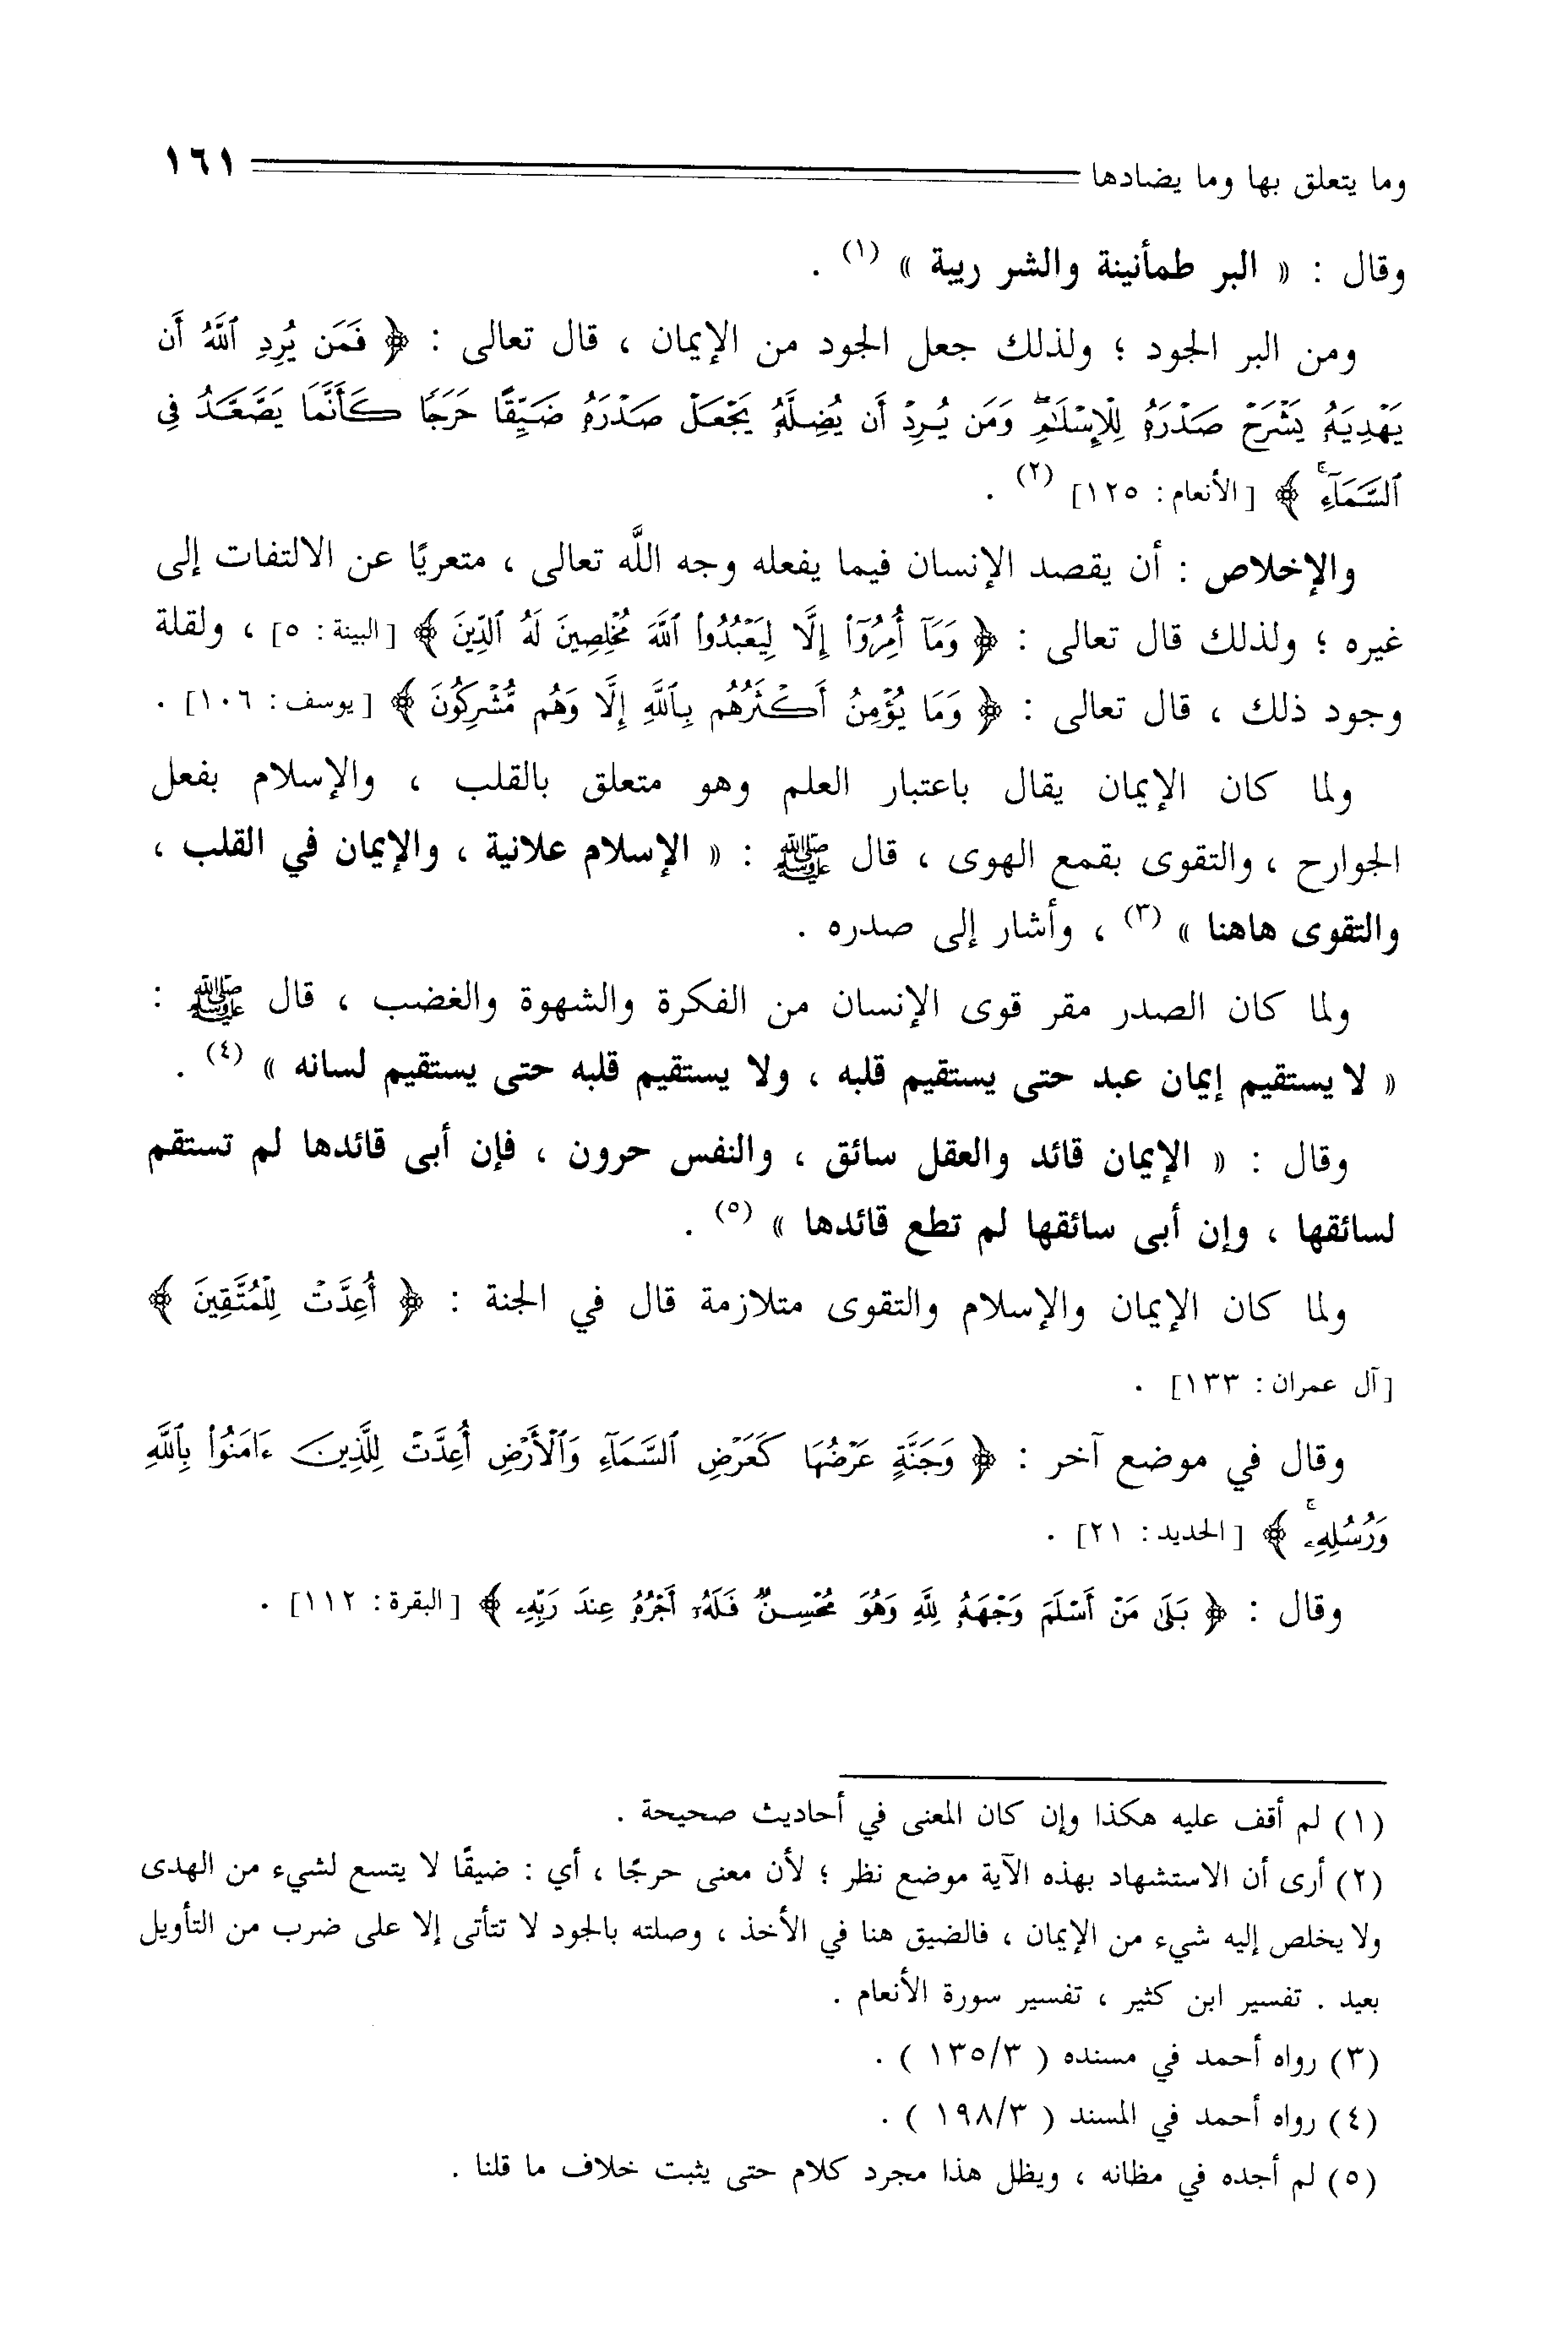 وما يتعلق بها وما يضادها ١٦١
وقال : « البر طمأنينة والشر ريبة » (١) .
ومن البر الجود ؛ ولذلك جعل الجود من الإيمان ، قال تعالى : ﴿ فَمَن يُرِدِ ٱللَّهُ أَن
يَهْدِيَهُۥ يَشْرَحْ صَدْرَهُۥ لِلْإِسْلَٰمِ ۖ وَمَن يُرِدْ أَن يُضِلَّهُۥ يَجْعَلْ صَدْرَهُۥ ضَيِّقًا حَرَجًا كَأَنَّمَا يَصَّعَّدُ فِى
ٱلسَّمَآءِ ۚ ﴾ [الأنعام: ١٢٥] (٢) .
والإخلاص : أن يقصد الإنسان فيما يفعله وجه اللَّه تعالى ، متعريًا عن الالتفات إلى
غيره ؛ ولذلك قال تعالى : ﴿ وَمَآ أُمِرُوٓا۟ إِلَّا لِيَعْبُدُوا۟ ٱللَّهَ مُخْلِصِينَ لَهُ ٱلدِّينَ ﴾ [البينة: ٥] ، ولقلة
وجود ذلك ، قال تعالى : ﴿ وَمَا يُؤْمِنُ أَكْثَرُهُم بِٱللَّهِ إِلَّا وَهُم مُّشْرِكُونَ ﴾ [يوسف: ١٠٦] .
ولما كان الإيمان يقال باعتبار العلم وهو متعلق بالقلب ، والإسلام بفعل
الجوارح ، والتقوى بقمع الهوى ، قال ﷺ : « الإسلام علانية ، والإيمان في القلب ،
والتقوى هاهنا » (٣) ، وأشار إلى صدره .
ولما كان الصدر مقر قوى الإنسان من الفكرة والشهوة والغضب ، قال ﷺ :
« لا يستقيم إيمان عبد حتى يستقيم قلبه ، ولا يستقيم قلبه حتى يستقيم لسانه » (٤) .
وقال : « الإيمان قائد والعقل سائق ، والنفس حرون ، فإن أبى قائدها لم تستقم
لسائقها ، وإن أبى سائقها لم تطع قائدها » (٥) .
ولما كان الإيمان والإسلام والتقوى متلازمة قال في الجنة : ﴿ أُعِدَّتْ لِلْمُتَّقِينَ ﴾
[آل عمران: ١٣٣] .
وقال في موضع آخر : ﴿ وَجَنَّةٍ عَرْضُهَا كَعَرْضِ ٱلسَّمَآءِ وَٱلْأَرْضِ أُعِدَّتْ لِلَّذِينَ ءَامَنُوا۟ بِٱللَّهِ
وَرُسُلِهِۦ ۚ ﴾ [الحديد: ٢١] .
وقال : ﴿ بَلَىٰ مَنْ أَسْلَمَ وَجْهَهُۥ لِلَّهِ وَهُوَ مُحْسِنٌ فَلَهُۥٓ أَجْرُهُۥ عِندَ رَبِّهِۦ ﴾ [البقرة: ١١٢] .
(١) لم أقف عليه هكذا وإن كان المعنى في أحاديث صحيحة .
(٢) أرى أن الاستشهاد بهذه الآية موضع نظر ؛ لأن معنى حرجًا ، أي : ضيقًا لا يتسع لشيء من الهدى
ولا يخلص إليه شيء من الإيمان ، فالضيق هنا في الأخذ ، وصلته بالجود لا تتأتى إلا على ضرب من التأويل
بعيد . تفسير ابن كثير ، تفسير سورة الأنعام .
(٣) رواه أحمد في مسنده ( ١٣٥/٣ ) .
(٤) رواه أحمد في المسند ( ١٩٨/٣ ) .
(٥) لم أجده في مظانه ، ويظل هذا مجرد كلام حتى يثبت خلاف ما قلنا .